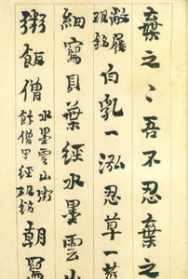 棄之〻吾不忍棄之
敝履
硯銘
白乳一泓忍草一莖
細寫貝葉經水墨雲山
粥飯僧
水墨雲山粥
飯僧寫經硯銘
朝寫